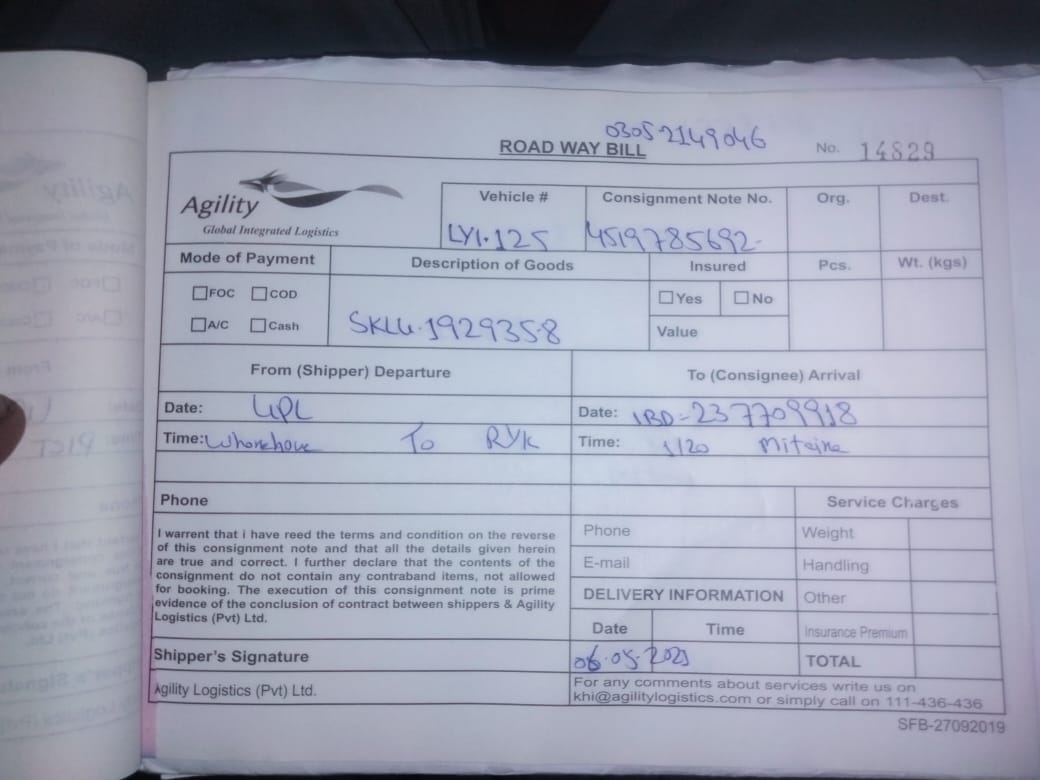 03052149046
ROAD WAY BILL
No. 14829
Agility
Global Integrated Logistics
Vehicle # Consignment Note No. Org. Dest.
LYI.125 4519785692-
Mode of Payment Description of Goods Insured Pcs. Wt. (kgs)
FOC COD
Yes No
A/C Cash
SKLU.1929358
Value
From (Shipper) Departure To (Consignee) Arrival
Date: UPL Date: IBD-237709918
Time: To RYK Time: 1/20
Phone Service Charges
I warrent that i have reed the terms and condition on the reverse
of this consignment note and that all the details given herein
are true and correct. I further declare that the contents of the
consignment do not contain any contraband items, not allowed
for booking. The execution of this consignment note is prime
evidence of the conclusion of contract between shippers & Agility
Logistics (Pvt) Ltd.
Phone Weight
E-mail Handling
DELIVERY INFORMATION Other
Date Time Insurance Premium
Shipper's Signature
06.05.2021 TOTAL
Agility Logistics (Pvt) Ltd.
For any comments about services write us on
khi@agilitylogistics.com or simply call on 111-436-436
SFB-27092019